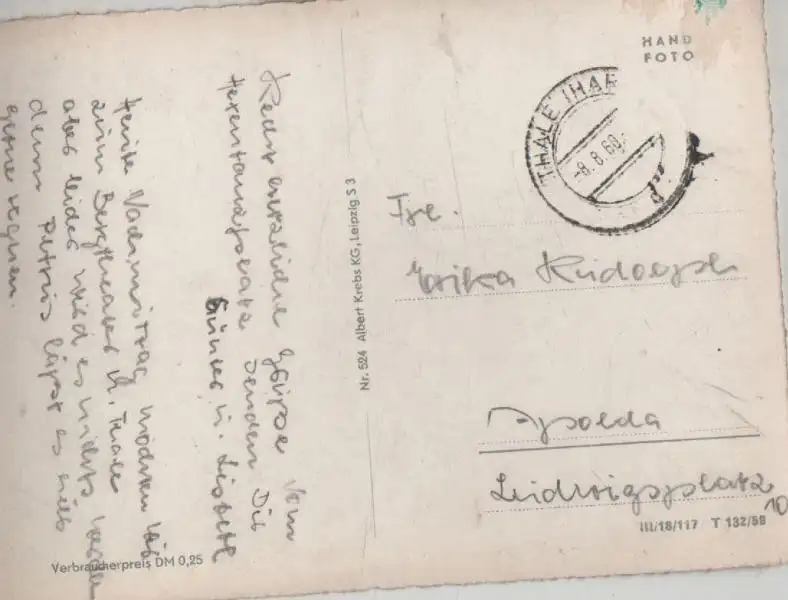 Recht herzliche Grüße vom
Hexentanzplatz senden Dir
Günter u. Lisbeth
Heute Nachmittag möchten wir
zum Bergtheater n. Thale
aber leider wird es nichts werden
denn Petrus läßt es
gerne regnen.
Verbraucherpreis DM 0,25
Nr. 524 Albert Krebs KG, Leipzig S 3
HAND
FOTO
THALE (HAR
-8.8.60.-
Fre.
Erika
Apolda
Ludwigsplatz 10
III/18/117 T 132/59